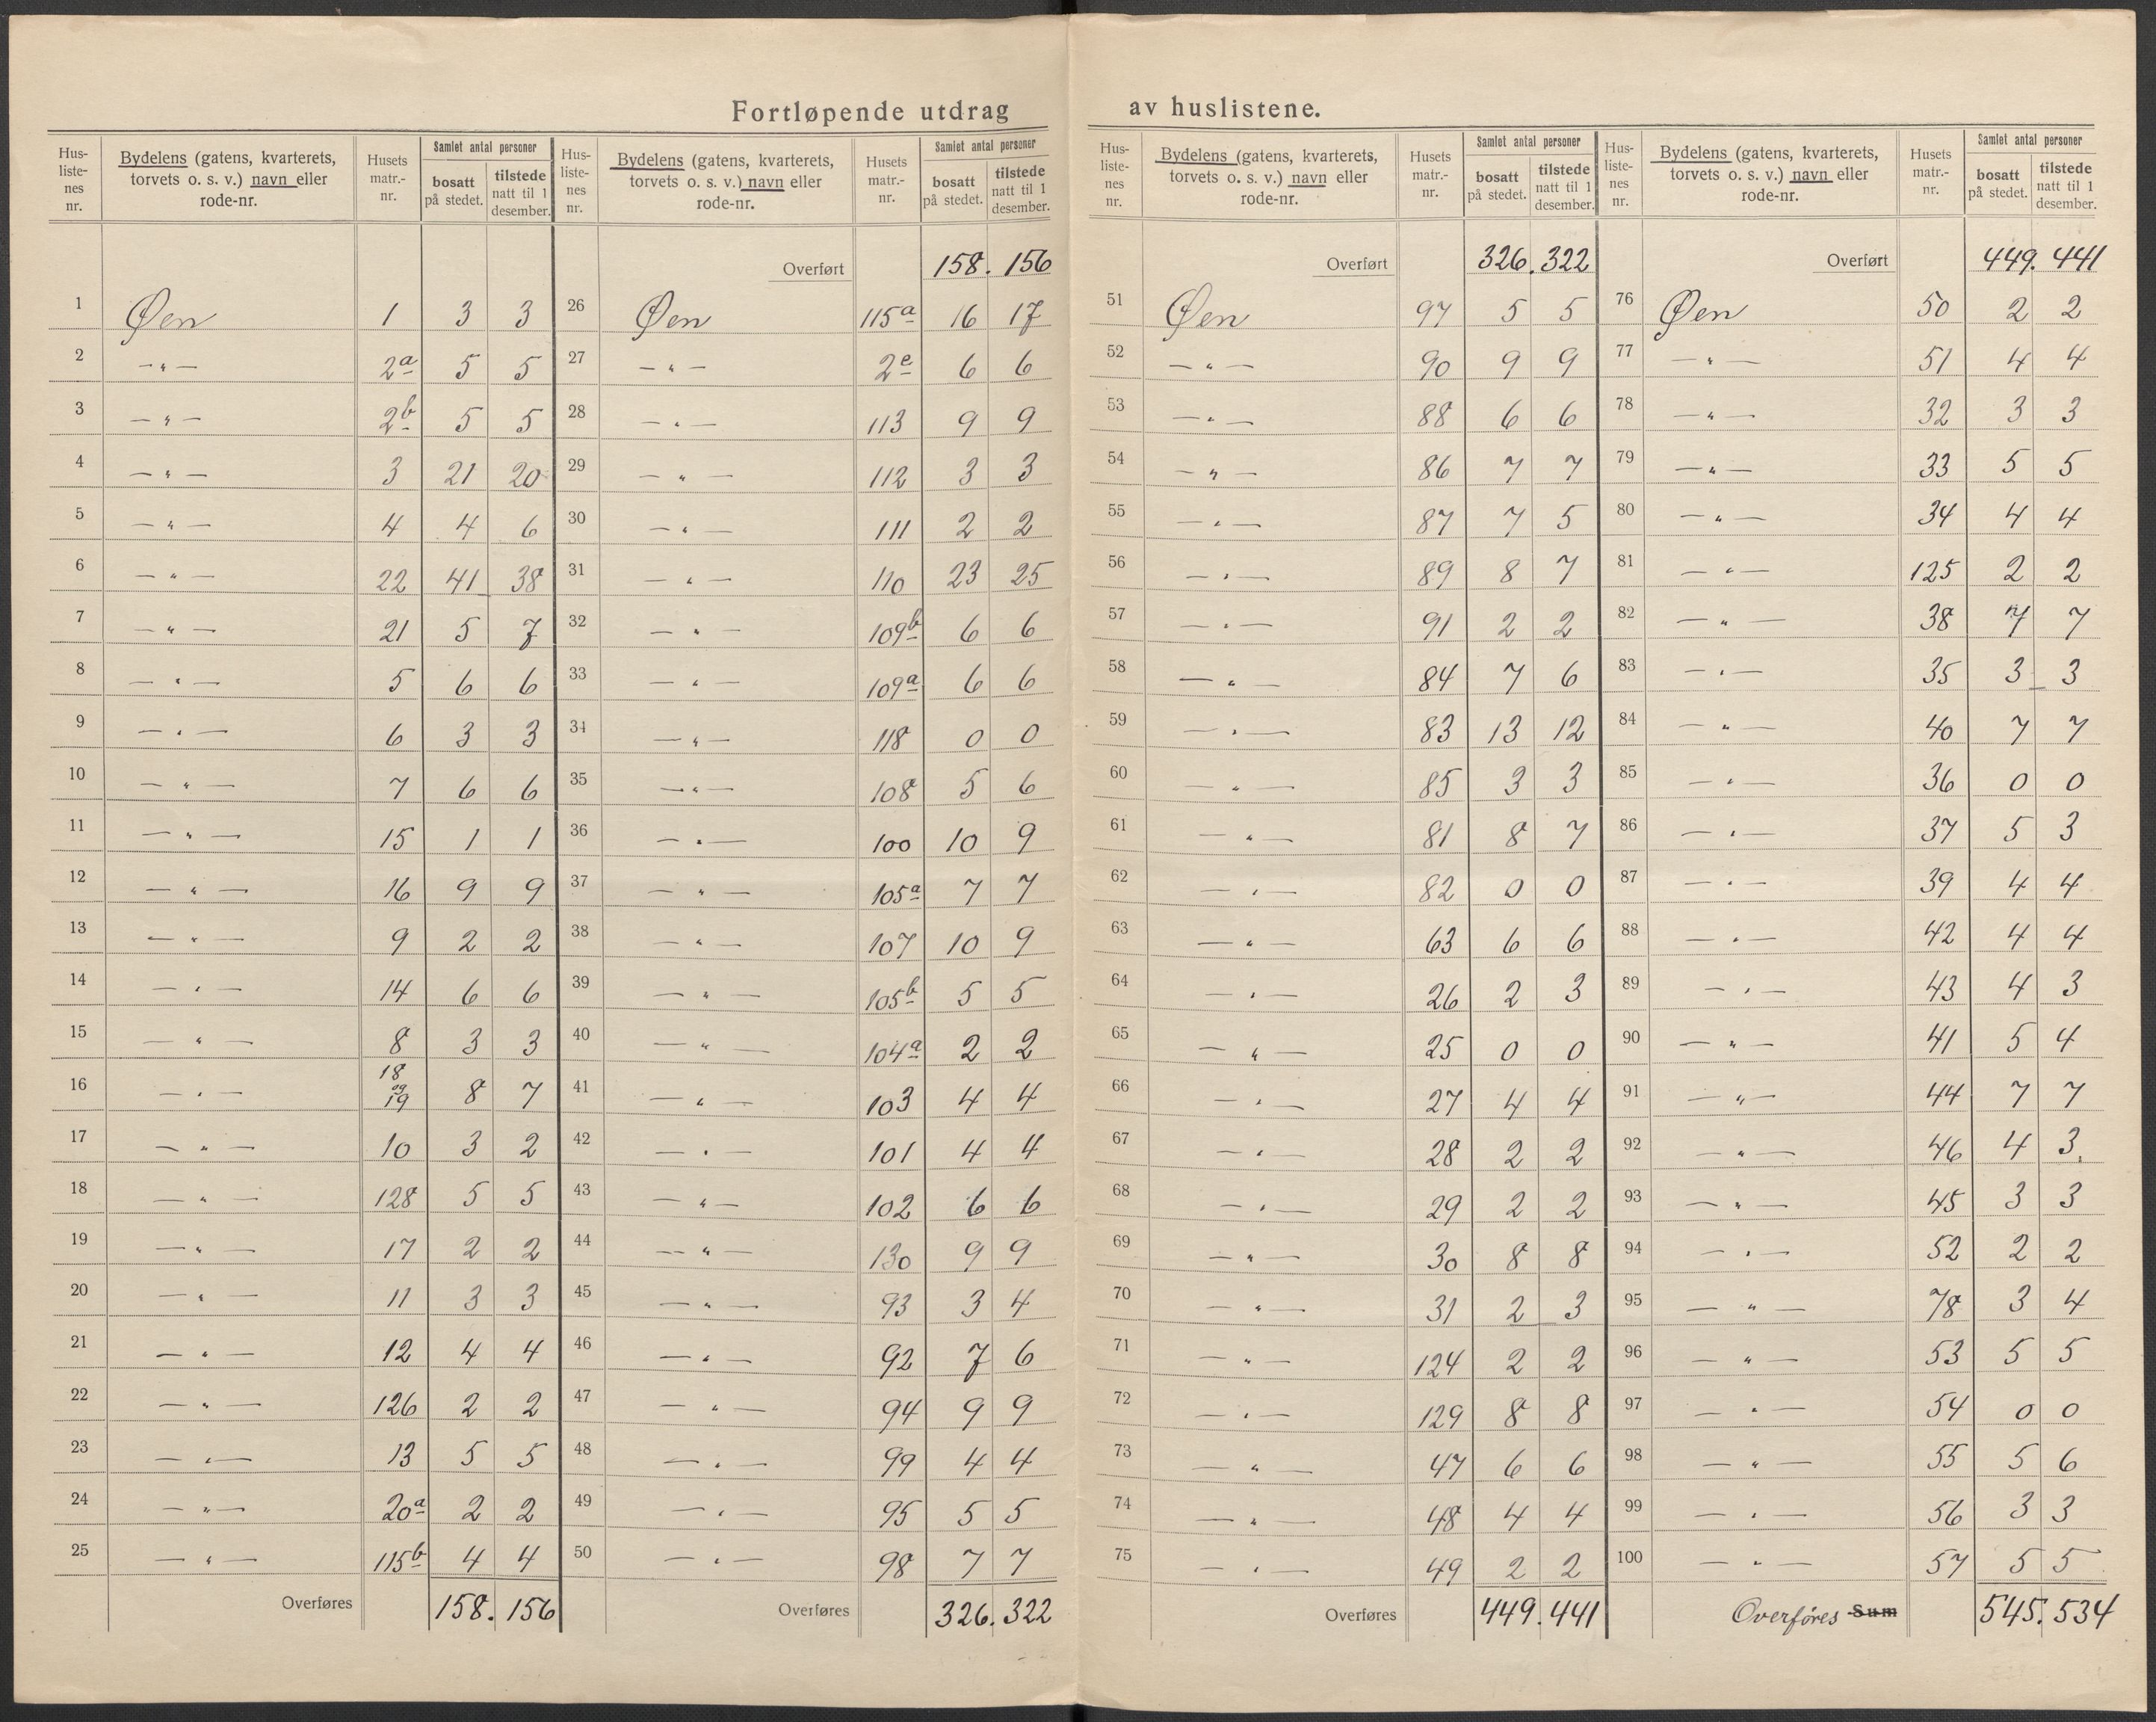 Fortløpende utdrag av huslistene.
Hus-listenes nr. | Bydelens (gatens, kvarterets, torvets o. s. v.) navn eller rode-nr. | Husets matr.-nr. | Samlet antal personer bosatt på stedet. | tilstede natt til 1 desember.
1 Øen 1 3 3
2 —„— 2a 5 5
3 —„— 2b 5 5
4 —„— 3 21 20
5 —„— 4 4 6
6 —„— 22 41 38
7 —„— 21 5 7
8 —„— 5 6 6
9 —„— 6 3 3
10 —„— 7 6 6
11 —„— 15 1 1
12 —„— 16 9 9
13 —„— 9 2 2
14 —„— 14 6 6
15 —„— 8 3 3
16 —„— 18 og 19 8 7
17 —„— 10 3 2
18 —„— 128 5 5
19 —„— 17 2 2
20 —„— 11 3 3
21 —„— 12 4 4
22 —„— 126 2 2
23 —„— 13 5 5
24 —„— 20a 2 2
25 —„— 115b 4 4
Overføres 158. 156
Hus-listenes nr. | Bydelens (gatens, kvarterets, torvets o. s. v.) navn eller rode-nr. | Husets matr.-nr. | Samlet antal personer bosatt på stedet. | tilstede natt til 1 desember.
Overført 158. 156
26 Øen 115a 16 17
27 —„— 2e 6 6
28 —„— 113 9 9
29 —„— 112 3 3
30 —„— 111 2 2
31 —„— 110 23 25
32 —„— 109b 6 6
33 —„— 109a 6 6
34 —„— 118 0 0
35 —„— 108 5 6
36 —„— 100 10 9
37 —„— 105a 7 7
38 —„— 107 10 9
39 —„— 105b 5 5
40 —„— 104a 2 2
41 —„— 103 4 4
42 —„— 101 4 4
43 —„— 102 6 6
44 —„— 130 9 9
45 —„— 93 3 4
46 —„— 92 7 6
47 —„— 94 9 9
48 —„— 99 4 4
49 —„— 95 5 5
50 —„— 98 7 7
Overføres 326. 322
Hus-listenes nr. | Bydelens (gatens, kvarterets, torvets o. s. v.) navn eller rode-nr. | Husets matr.-nr. | Samlet antal personer bosatt på stedet. | tilstede natt til 1 desember.
Overført 326. 322
51 Øen 97 5 5
52 —„— 90 9 9
53 —„— 88 6 6
54 —„— 86 7 7
55 —„— 87 7 5
56 —„— 89 8 7
57 —„— 91 2 2
58 —„— 84 7 6
59 —„— 83 13 12
60 —„— 85 3 3
61 —„— 81 8 7
62 —„— 82 0 0
63 —„— 63 6 6
64 —„— 26 2 3
65 —„— 25 0 0
66 —„— 27 4 4
67 —„— 28 2 2
68 —„— 29 2 2
69 —„— 30 8 8
70 —„— 31 2 3
71 —„— 124 2 2
72 —„— 129 8 8
73 —„— 47 6 6
74 —„— 48 4 4
75 —„— 49 2 2
Overføres 449. 441
Hus-listenes nr. | Bydelens (gatens, kvarterets, torvets o. s. v.) navn eller rode-nr. | Husets matr.-nr. | Samlet antal personer bosatt på stedet. | tilstede natt til 1 desember.
Overført 449. 441
76 Øen 50 2 2
77 —„— 51 4 4
78 —„— 32 3 3
79 —„— 33 5 5
80 —„— 34 4 4
81 —„— 125 2 2
82 —„— 38 7 7
83 —„— 35 3 3
84 —„— 40 7 7
85 —„— 36 0 0
86 —„— 37 5 3
87 —„— 39 4 4
88 —„— 42 4 4
89 —„— 43 4 3
90 —„— 41 5 4
91 —„— 44 7 7
92 —„— 46 4 3.
93 —„— 45 3 3
94 —„— 52 2 2
95 —„— 78 3 4
96 —„— 53 5 5
97 —„— 54 0 0
98 —„— 55 5 6
99 —„— 56 3 3
100 —„— 57 5 5
Overføres Sum 545. 534